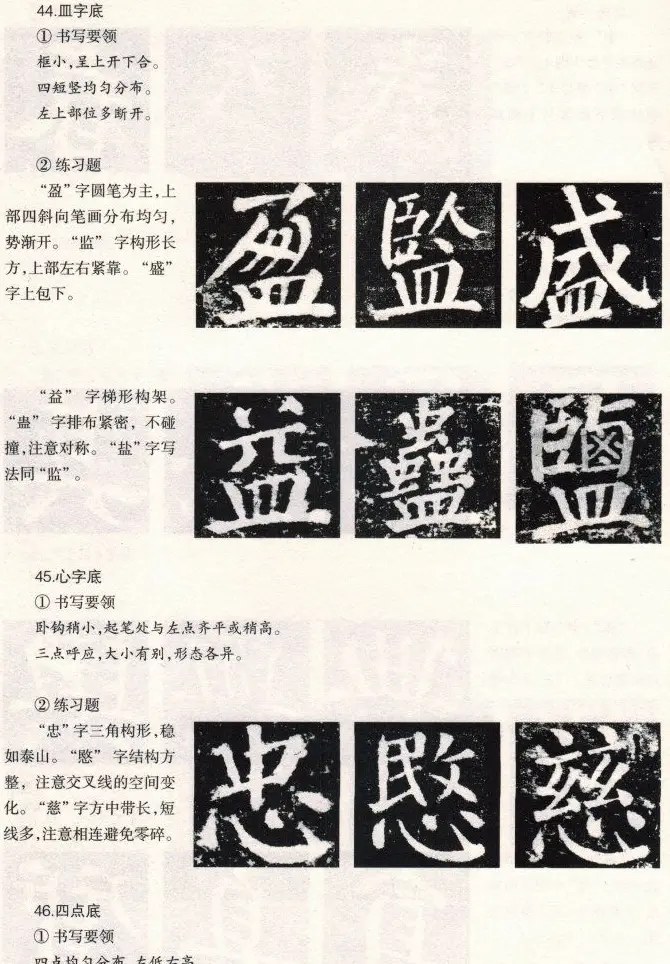 44.皿字底
①书写要领
框小,呈上开下合。
四短竖均匀分布。
左上部位多断开。
②练习题
“盈”字圆笔为主,上
部四斜向笔画分布均匀,
势渐开。“监” 字构形长
方,上部左右紧靠。“盛”
字上包下。
盈 監 盛
“益” 字梯形构架。
“蛊” 字排布紧密, 不碰
撞,注意对称。“盐”字写
法同“监”。
益 蠱 鹽
45.心字底
①书写要领
卧钩稍小,起笔处与左点齐平或稍高。
三点呼应,大小有别,形态各异。
②练习题
“忠”字三角构形,稳
如泰山。“愍” 字结构方
整, 注意交叉线的空间变
化。“慈”字方中带长,短
线多,注意相连避免零碎。
忠 愍 慈
46.四点底
①书写要领
四点均匀分布,左低右高